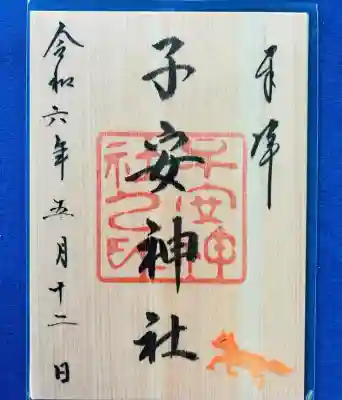 奉拝
子安神社
子安神社之印
令和六年五月十二日